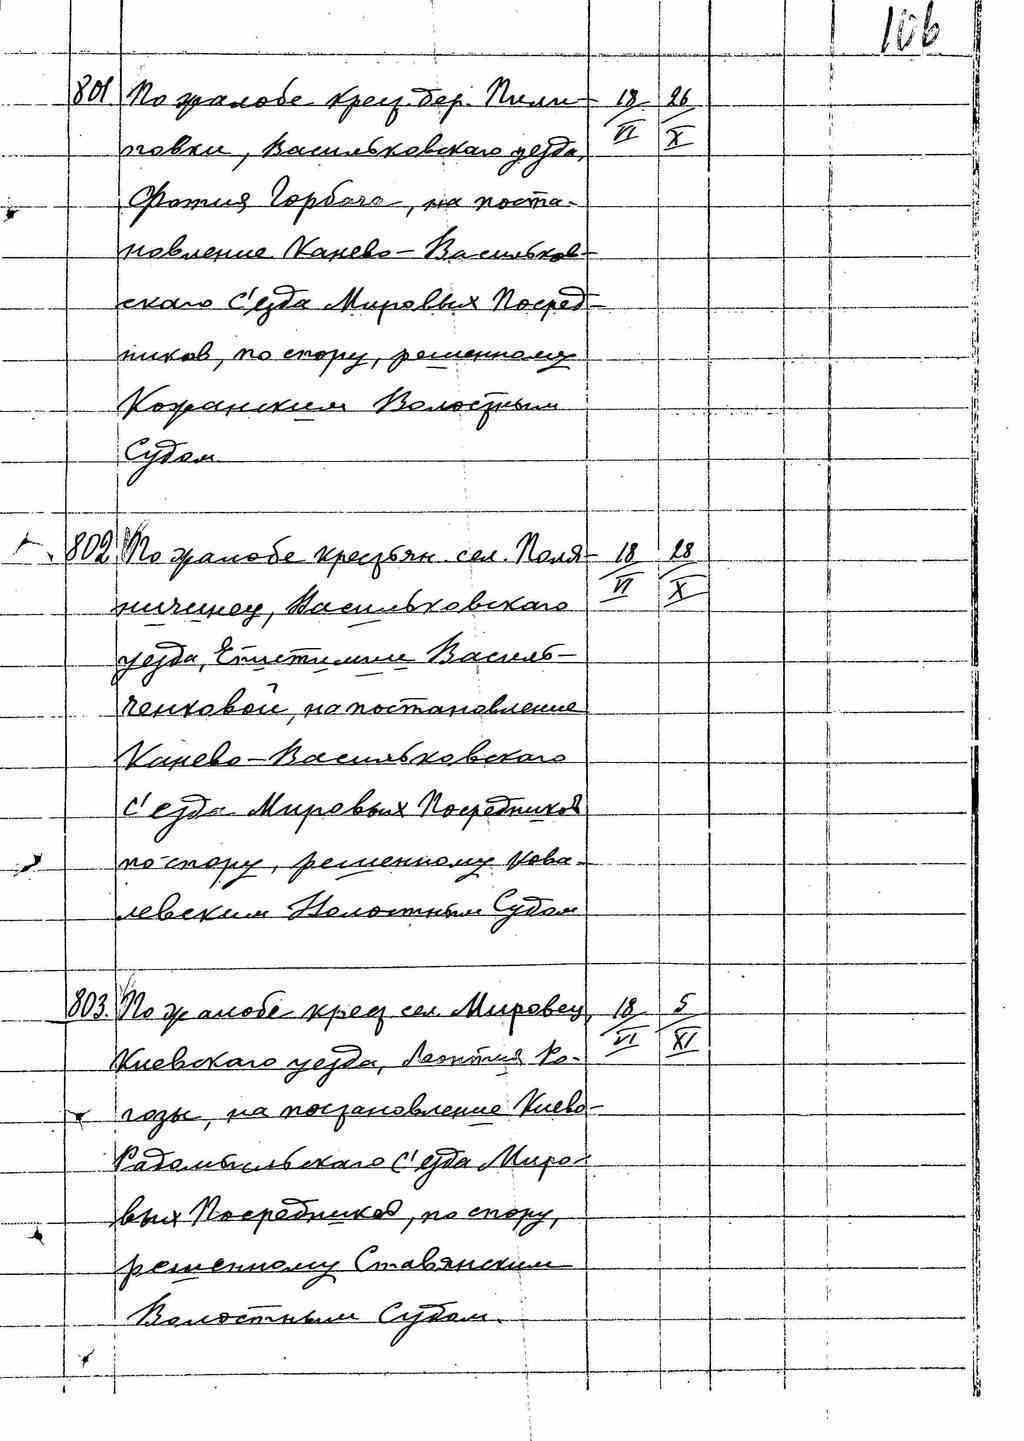 106
801 По жалобе крец. дер. Пили- 18/VI 26/X
повки, Васильковского уезда,
Фотия Горбача, на поста-
новление Канево-Васильков-
ского С'езда Мировых Посред-
ников, по спору, решенному
Кожанским Волостным
Судом
802 По жалобе крестьян. сел. Поля- 18/VI 28/X
ничинец, Васильковского
уезда, Епистимии Василь-
ченковой, на постановление
Канево-Васильковского
С'езда Мировых Посредников
по спору, решенному Кова-
левским Волостным Судом
803. По жалобе крест. сел. Мировец, 18/VI 5/XI
Киевского уезда, Леонтия Ро-
гозы, на постановление Киево-
Радомысльского С'езда Миро-
вых Посредников, по спору,
решенному Ставянским
Волостным Судом.